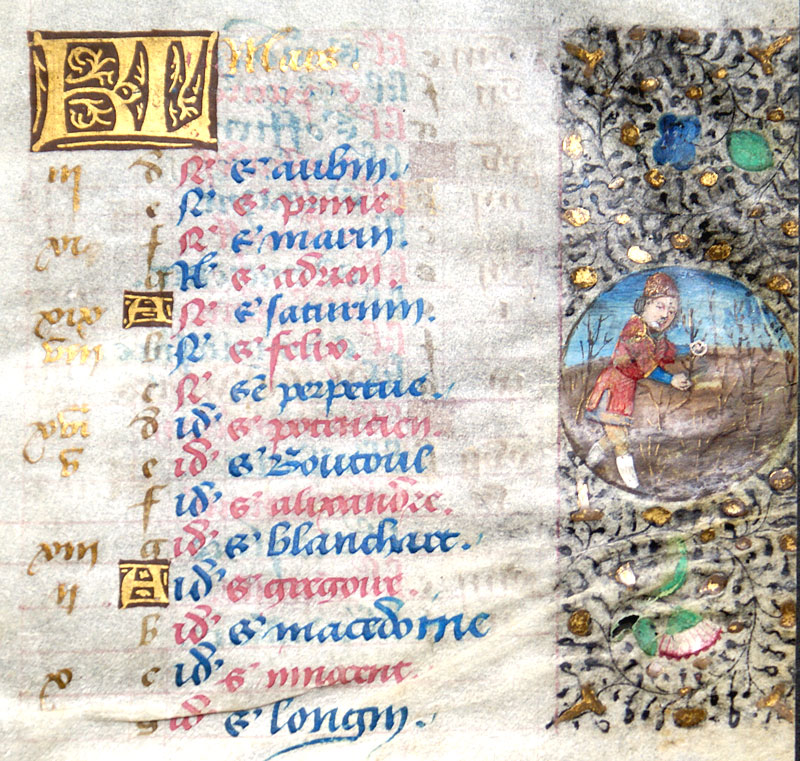 KL Mars.
iii d N' s' aubin.
e N' s' prime.
xi f N' s' marin.
g N' s' adrien.
xix A N' s' saturnin.
viii b N' s' felix.
c N' sē perpetue.
xvi d id' s' potencien.
v e id' s'
f id' s' alixandre.
xiii g id' s' blanchart.
ii A id' s' gregoire.
b id' s' macedoine
x c id' s' innocent.
id' s' longin.